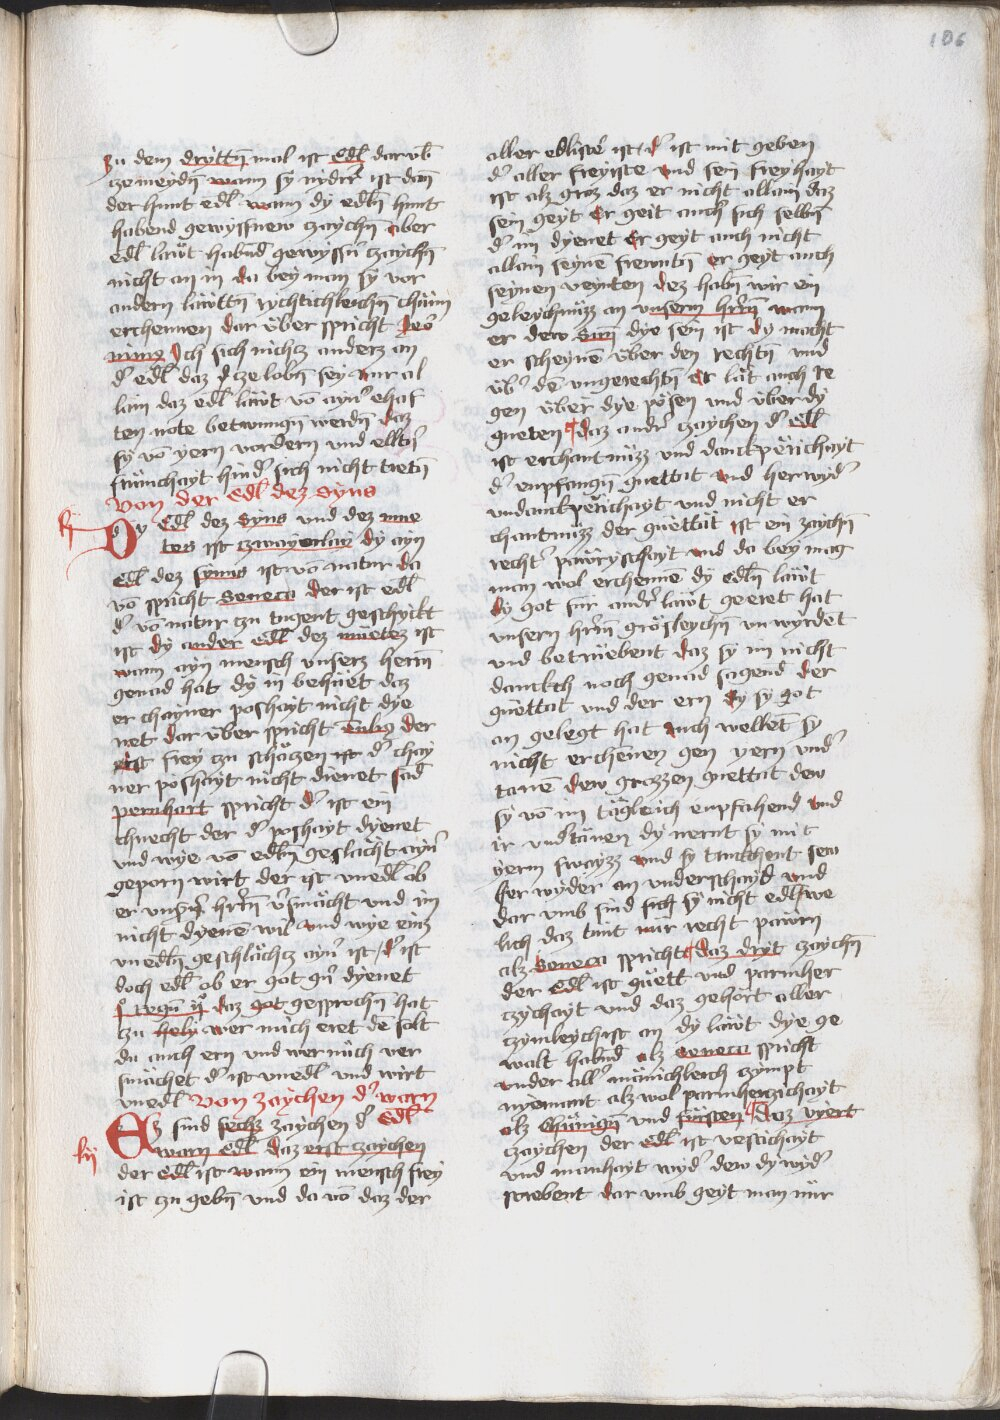 106
Zu dem drytt̄n mal ist Edl̄ dar vb̄
ze meydn̄ wann sy nidrr̄ ist dan̄
der hunt edl̄ wann dy edl̄n hunt
habend gewyssnew zaychn̄ aber
edl̄ läẅt habn̄d gewyssn̄ zaychn̄
nicht an in da bey man sy vor
andern läẅttn̄ rychtichleichn̄ chün̄
erchennen dar über spricht Jero
nimus Ich sich nichcz anderz an
d' edl̄ daz ze lobn̄ sey nur al
lain daz edl̄ läwt vō ayn' ehaf
ten note betwungn̄ werdn̄ daz
sy vō yern vordern vnd elltn̄
frümchayt hind' sich nicht tretn̄
Von der Edl̄ dez Syns
Dy Edl̄ dez Syns vnd dez mue
tes ist czwayerlay dy ayn
edl̄ dez Synns ist vō natur da
vō spricht Seneca der ist edl̄
d' vō natur zu tugent geschykt
ist dy ander edl̄ dez müetez ist
wann ayn mensch vnserz herrn̄
genad hat dy in behüet daz
er chayner poshayt nicht dye
net dar über spricht der
ist frey zu schäczen ist d' chay
ner poshayt nicht dienet sand
pernhart spricht d' ist ein
chnecht der d' poshayt dyenet
vnd wye vō edl̄n geslächt ayn'
geporn wirt der ist vnedl̄ ob
er vns'n hrrn̄ v'smächt vnd im
nicht dyenē wil vnd wye eincz
vnedl̄n geschlächcz ayn' ist / d' ist
doch edl̄ ob er got gn̄ dyenet
daz got gesprochn̄ hat
zu hely wer mich eret dē solt
du auch ern vnd wer mich ver
smächet d' ist vnedl̄ vnd wirt
vnedl̄ Von zaychen d' warn
Edl̄
Ez sind sechz zaychen d'
warn edl̄ daz erst zaychen
der edl̄ ist wann ein mensch frey
ist zu gebn̄ vnd da vō daz der
aller edlist' ist / d' ist mit geben
d' aller freyiste vnd sein freyhayt
ist alz groz daz er nicht allain daz
sein geyt Er geit auch sich selbn̄
d' im dyenet Er geyt auch nicht
allain seynē frewntn̄ er geyt auch
seynen veynten dez habn̄ wir ein
geleychnüzz an vnserm hrrn̄ wann
er dew Sun̄ dye sein ist dy macht
er scheynē über den rechtn̄ vnd
üb' dē vngerechtn̄ Er lät auch re
gen über dye pösen vnd über dy
gueten daz ander zaychen d' edl̄
ist erchantnüzz vnd danckperichayt
d' enpfangn̄ guettat vnd herwyd'
vndanckperichayt vnd nicht er
chantnüzz der guettät ist ein zaychn̄
recht' pawryschayt vnd da bey mag
man wol erchennē dy edl̄n läwt
dy got für and' läwt geeret hat
vnsern hrrn̄ grösleychn̄ vnwyrdet
vnd betrüebent daz sy im nicht
danckch noch genad sagend der
guettat vnd der ern dy sy got
an gelegt hat auch wellet sy
nicht erchenen gen yern vnd'
tanē dew grozzen guettat dew
sy vō im tägleich enpfahend vnd
ir vnd'tänen dy nernt sy mit
yerm swayzz vnd sy tanckhent sew
her wyder an vnderschayd vnd
dar vmb sind sich sy nicht edl̄ we
lich daz tünt nür recht pawrn
alz Seneca spricht daz dryt zaychn̄
der edl̄ ist güett vnd parmher
czychayt vnd daz gehört aller
czymleychist an dy läwt dye ge
walt habn̄d alz Seneca spricht
vnder all' männichleich czympt
nyemant alz wol parmherczichayt
alz chünign̄ vnd fürsten Daz vyert
zaychen der edl̄ ist vestichayt
vnd manhayt wyd' dew dy wyd'
strebent dar vmb geyt man nür